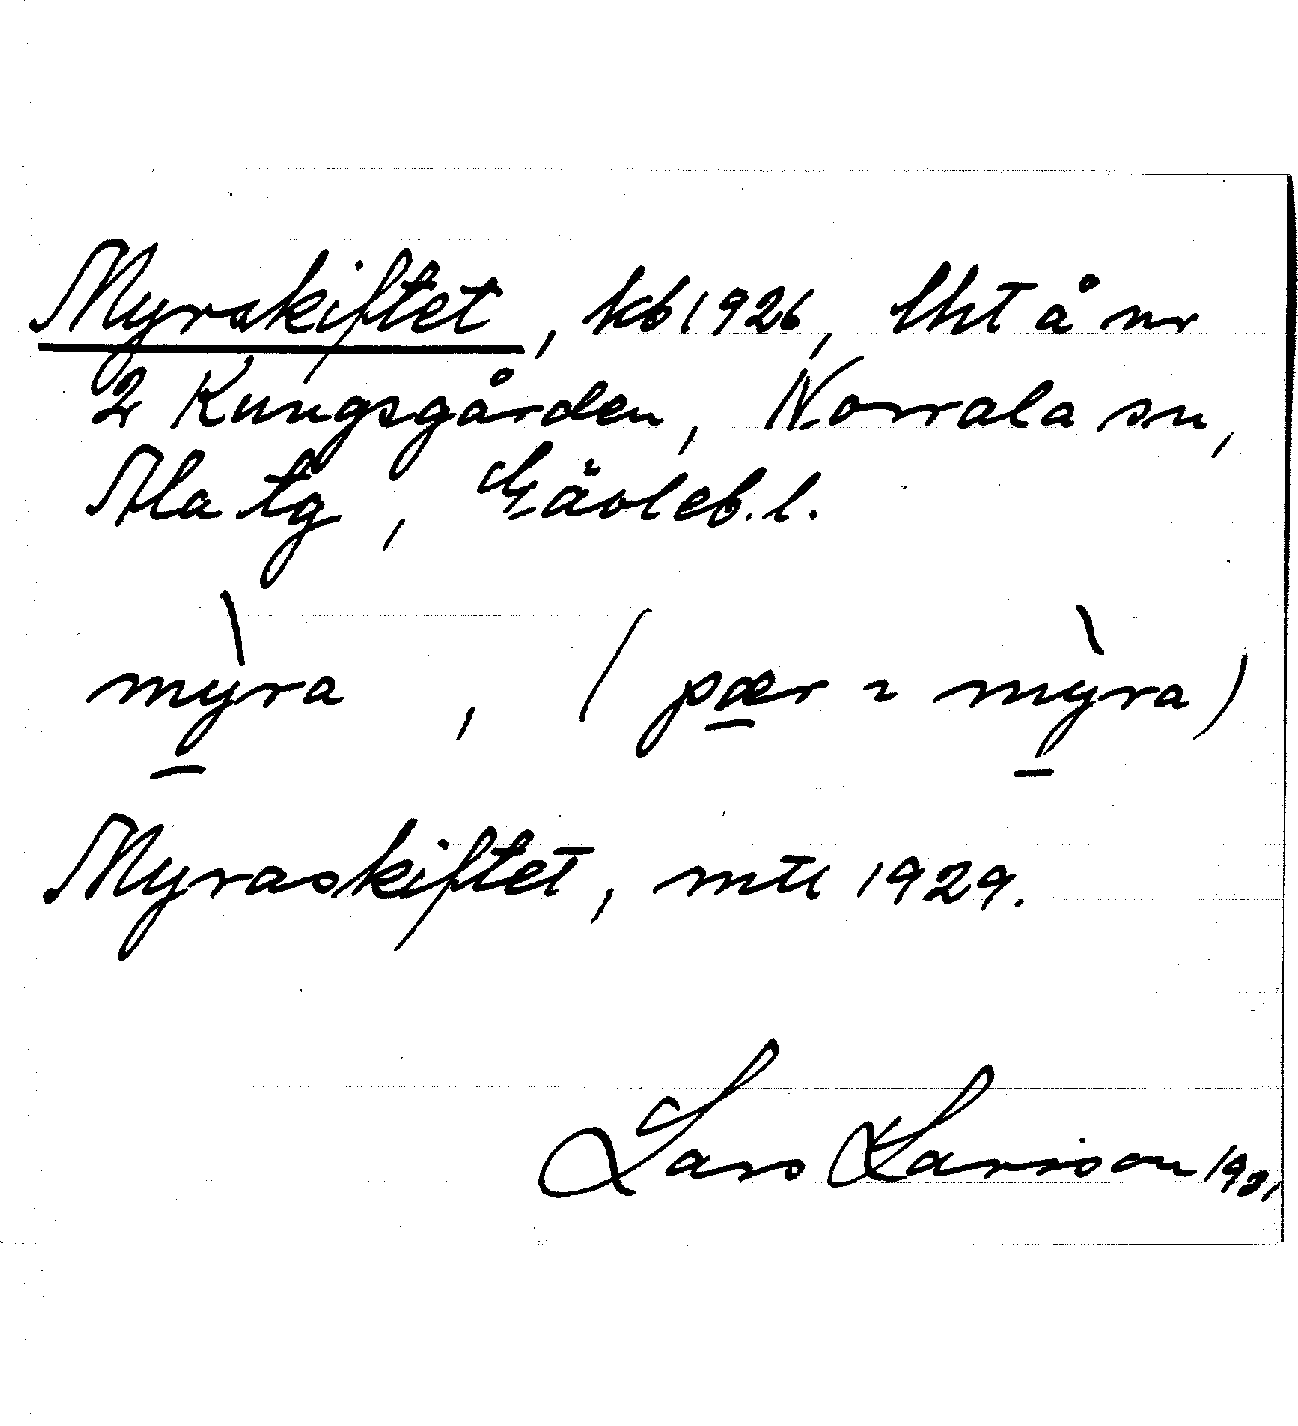 Myrskiftet, kb 1926, lht å nr
2 Kungsgården, Norrala sn,
Ala tg, Gävleb. l.
mỳra, (pær = mỳra)
Myraskiftet, mtl 1929.
Lars Larsson